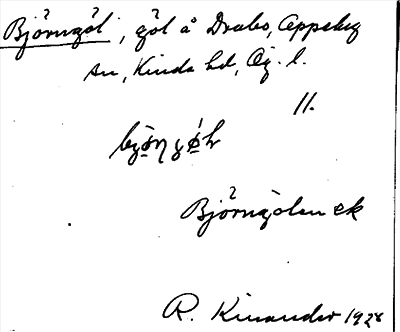 Björngöl, göl å Drabo, Oppeby
sn, Kinda hd, Ög. l.
11.
Björngölen ek
R. Kinander 1928